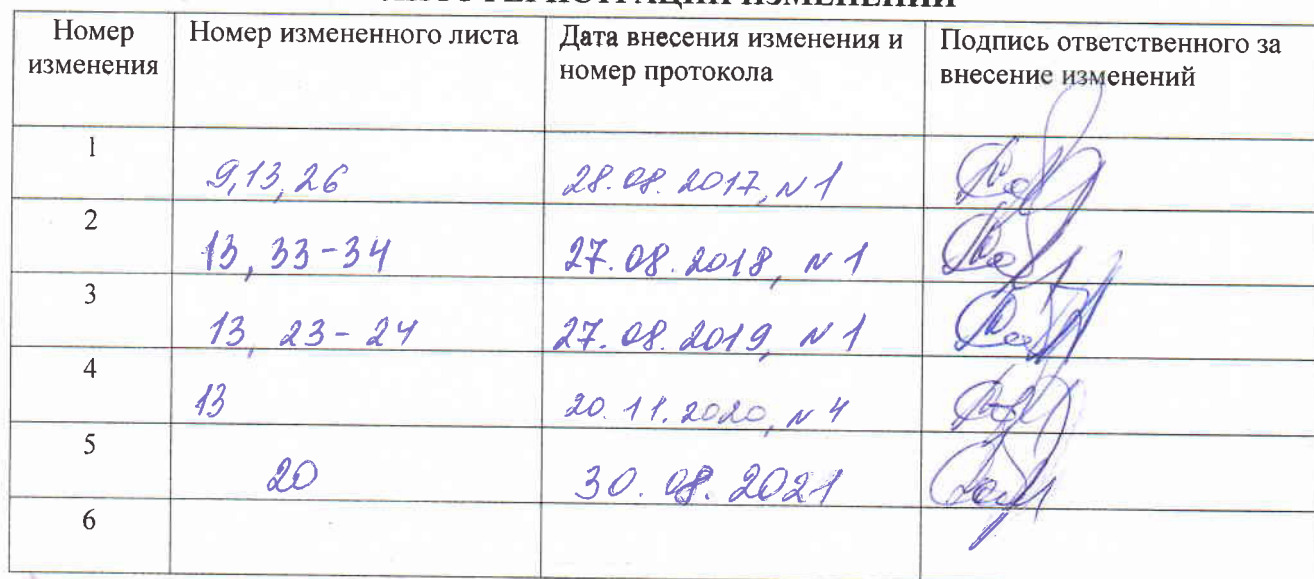 ЛИСТ РЕГИСТРАЦИИ ИЗМЕНЕНИЙ
Номер изменения Номер измененного листа Дата внесения изменения и номер протокола Подпись ответственного за внесение изменений
1 9,13,26 28.08.2017, N 1
2 13, 33-34 27.08.2018, N 1
3 13, 23-24 27.08.2019, N 1
4 13 20.11.2020, N 4
5 20 30.08.2021
6